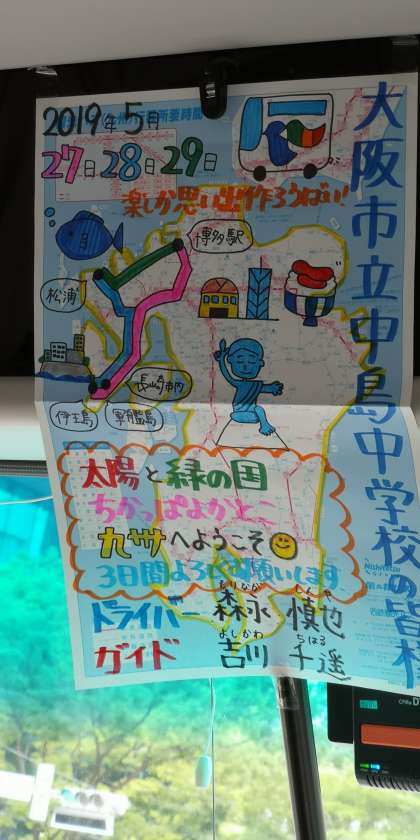 大阪市立中島中学校の皆様
2019年5月
27日28日29日
楽しか思い出作ろうばい!
博多駅
松浦
長崎市内
伊王島
軍艦島
太陽と緑の国
ちかっぱよかとこ
九州へようこそ
3日間よろしくお願いします
ドライバー 森永 慎也
もりなが しんや
ガイド 吉川 千遥
よしかわ ちはる